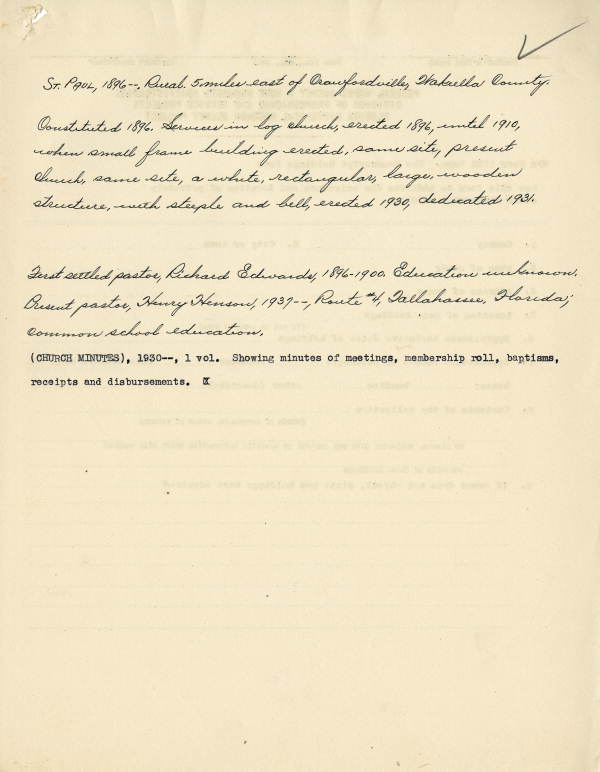 St. Paul, 1896--, Rural. 5 miles east of Crawfordville, Wakulla County.
Constituted 1896. Services in log church, erected 1896, until 1910,
when small frame building erected, same site, present
church, same site, a white, rectangular, large, wooden
structure, with steeple and bell, erected 1930, dedicated 1931.
First settled pastor, Richard Edwards, 1896-1900. Education unknown.
Present pastor, Henry Henson, 1937--, Route #4, Tallahassee, Florida;
common school education.
(CHURCH MINUTES), 1930--, 1 vol. Showing minutes of meetings, membership roll, baptisms,
receipts and disbursements.